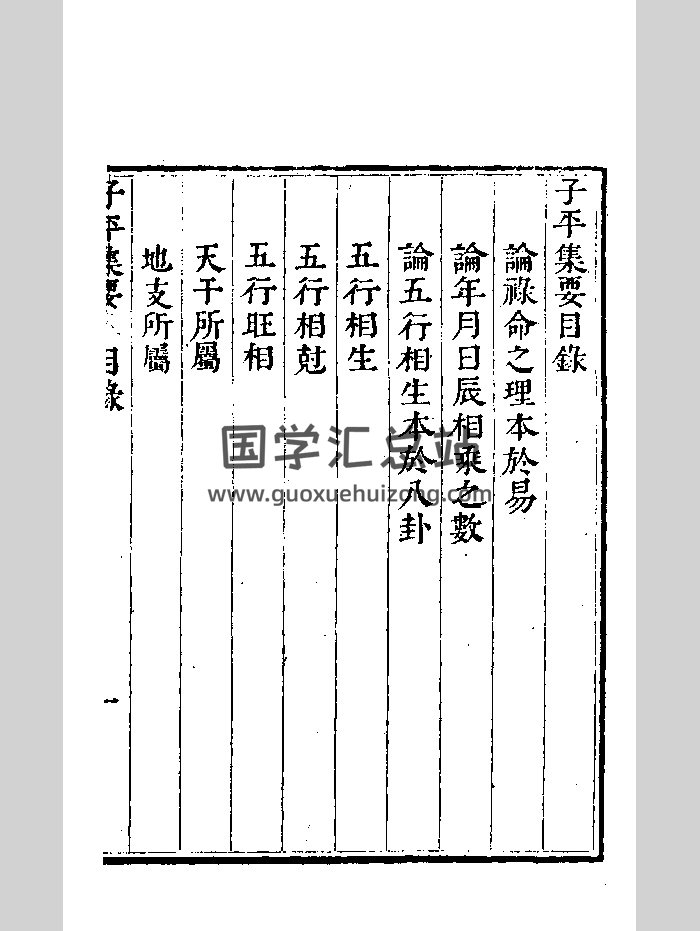 子平集要目錄
論祿命之理本於易
論年月日辰相乘之數
論五行相生本於八卦
五行相生
五行相尅
五行旺相
天干所屬
地支所屬
子平集要 目錄 一
国学汇总站
www.guoxuehuizong.com